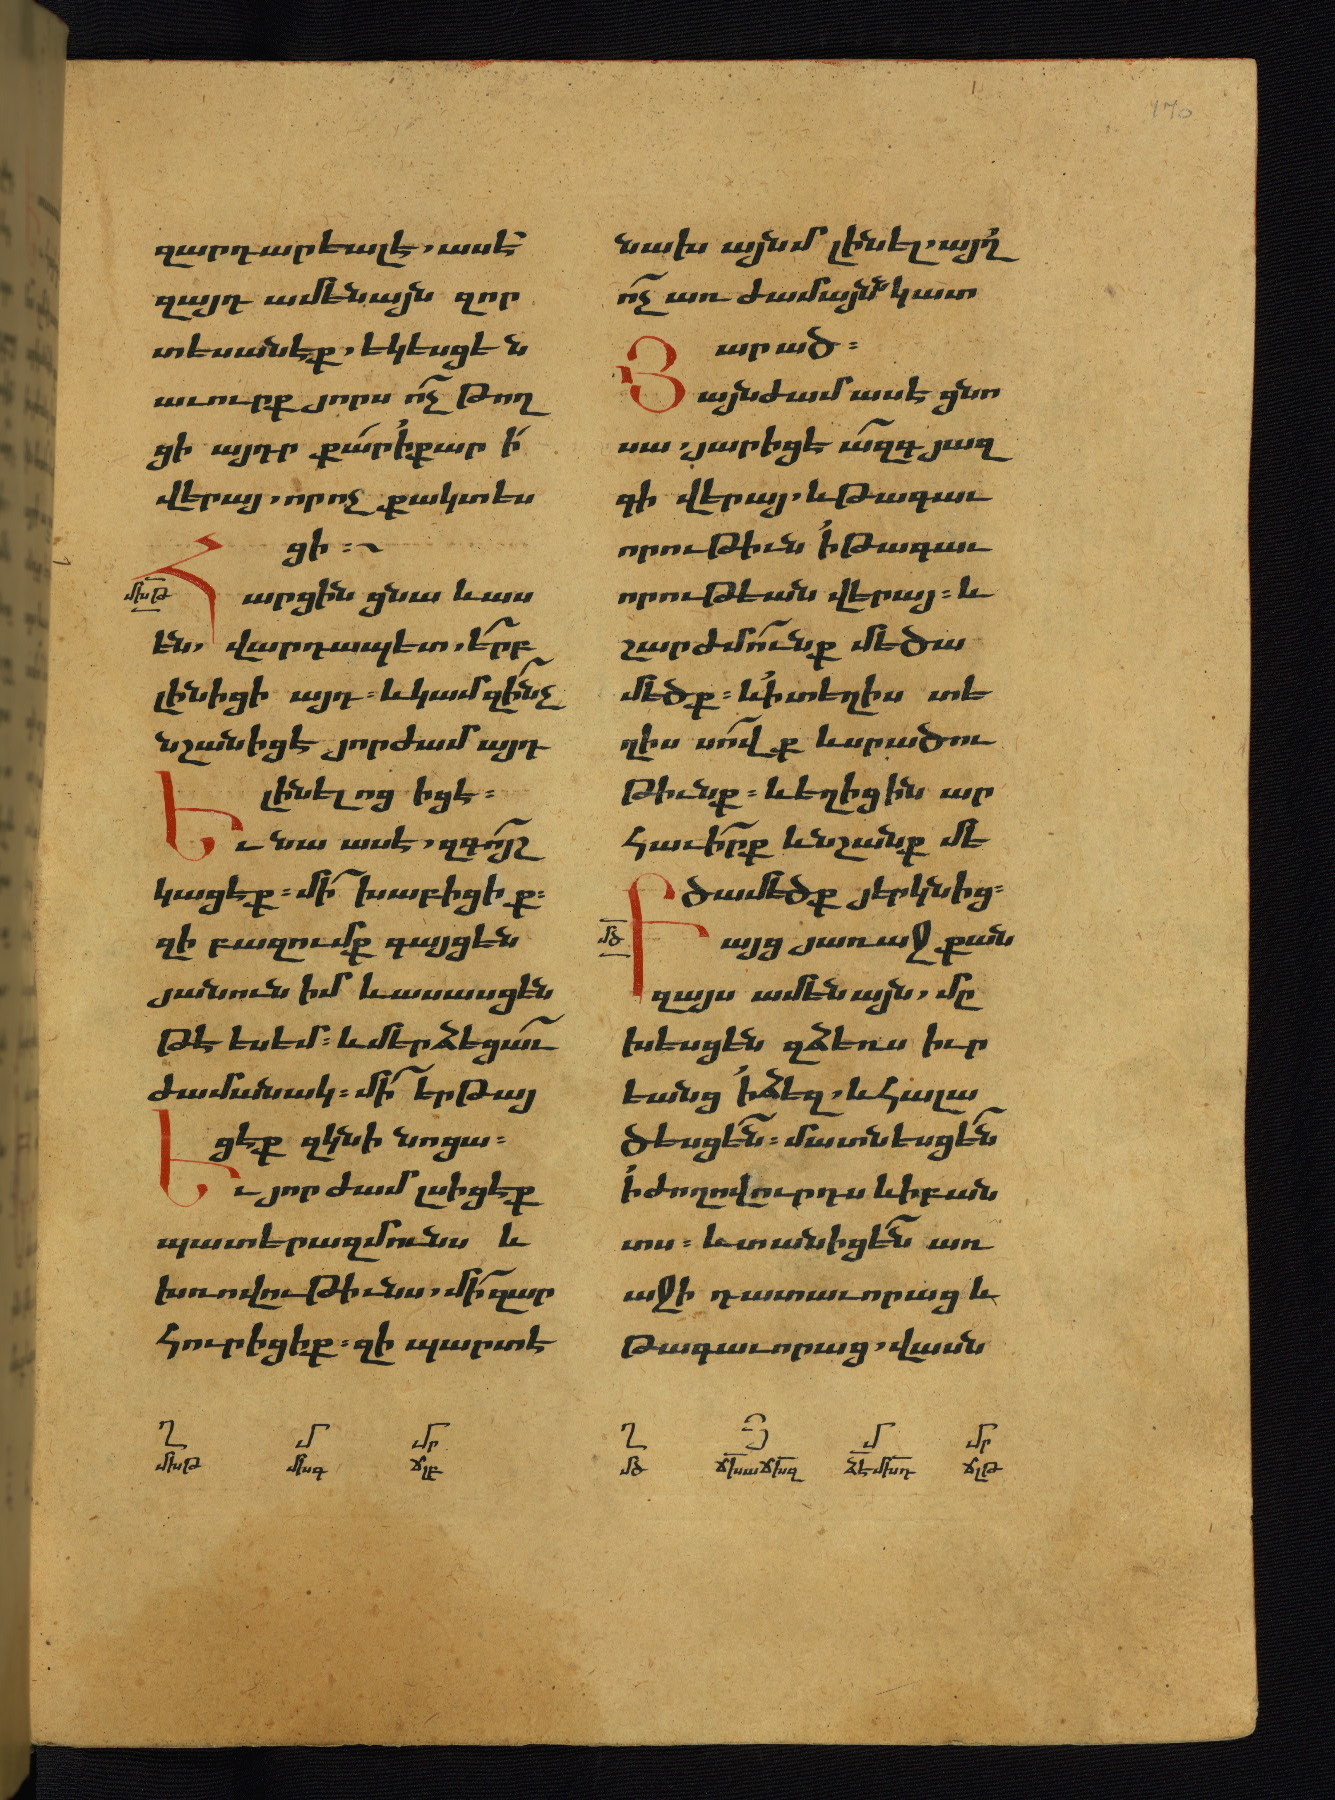 170
զարդարեալէ, ասէ՝
զայդ ամենայն զոր
տեսանէք, եկեսցեն
աւուրք յորս ո՛չ թող
ցի այդր քար՛ի քար ՛ի
վերայ, որոչ քակտես
ցի։
մխթ
Հարցին ցնա և աս
են, վարդապետ, երբ
լինիցի այդ։ և կամ զինչ
նշանիցէ յորժամ այդ
լինելոց իցէ։
Եւ նա ասէ, զգոյշ
կացէք։ մի՛ խաբիցիք։
զի բազումք գայցեն
յանուն իմ և ասասցեն
թէ ես եմ։ և մերձեցաւ
ժամանակ։ մի՛ երթայ
ցէք զկնի նոցա։
Եւ յորժամ լսիցէք
պատերազմունս և
խռովութիւնս, մի՛ զար
հուրիցիք։ զի պարտէ
նախ այնմ լինել, այղ
ո՛չ առժամայն կատ
արած։
Յայնժամ ասէ ցնո
սա, յարիցէ ազգ յազ
գի վերայ, և թագաւ
որութիւն ՛ի թագաւ
որութեան վերայ։ և
շարժմունք մեծա
մեծք։ և ՛ի տեղիս տե
ղիս սովք և սրածու
թիւնք։ և եղիցին ար
հաւիրք և նշանք մե
ծամեծք յերկնից։
մծ
Բայց յառաջ քան
զայս ամենայն, մը
խեսցեն զձեռս իւր
եանց ՛ի ձեզ, և հալա
ծեսցեն։ մատնեսցեն
՛ի ժողովուրդս և ի բան
տս։ և տանիցեն առ
աջի դատաւորաց և
թագաւորաց, վասն
Ղ Մ Մր
մխթ մխգ ճլբ
Ղ Յ Մ Մր
մծ ճխաճխզ ձեմխդ ճլթ